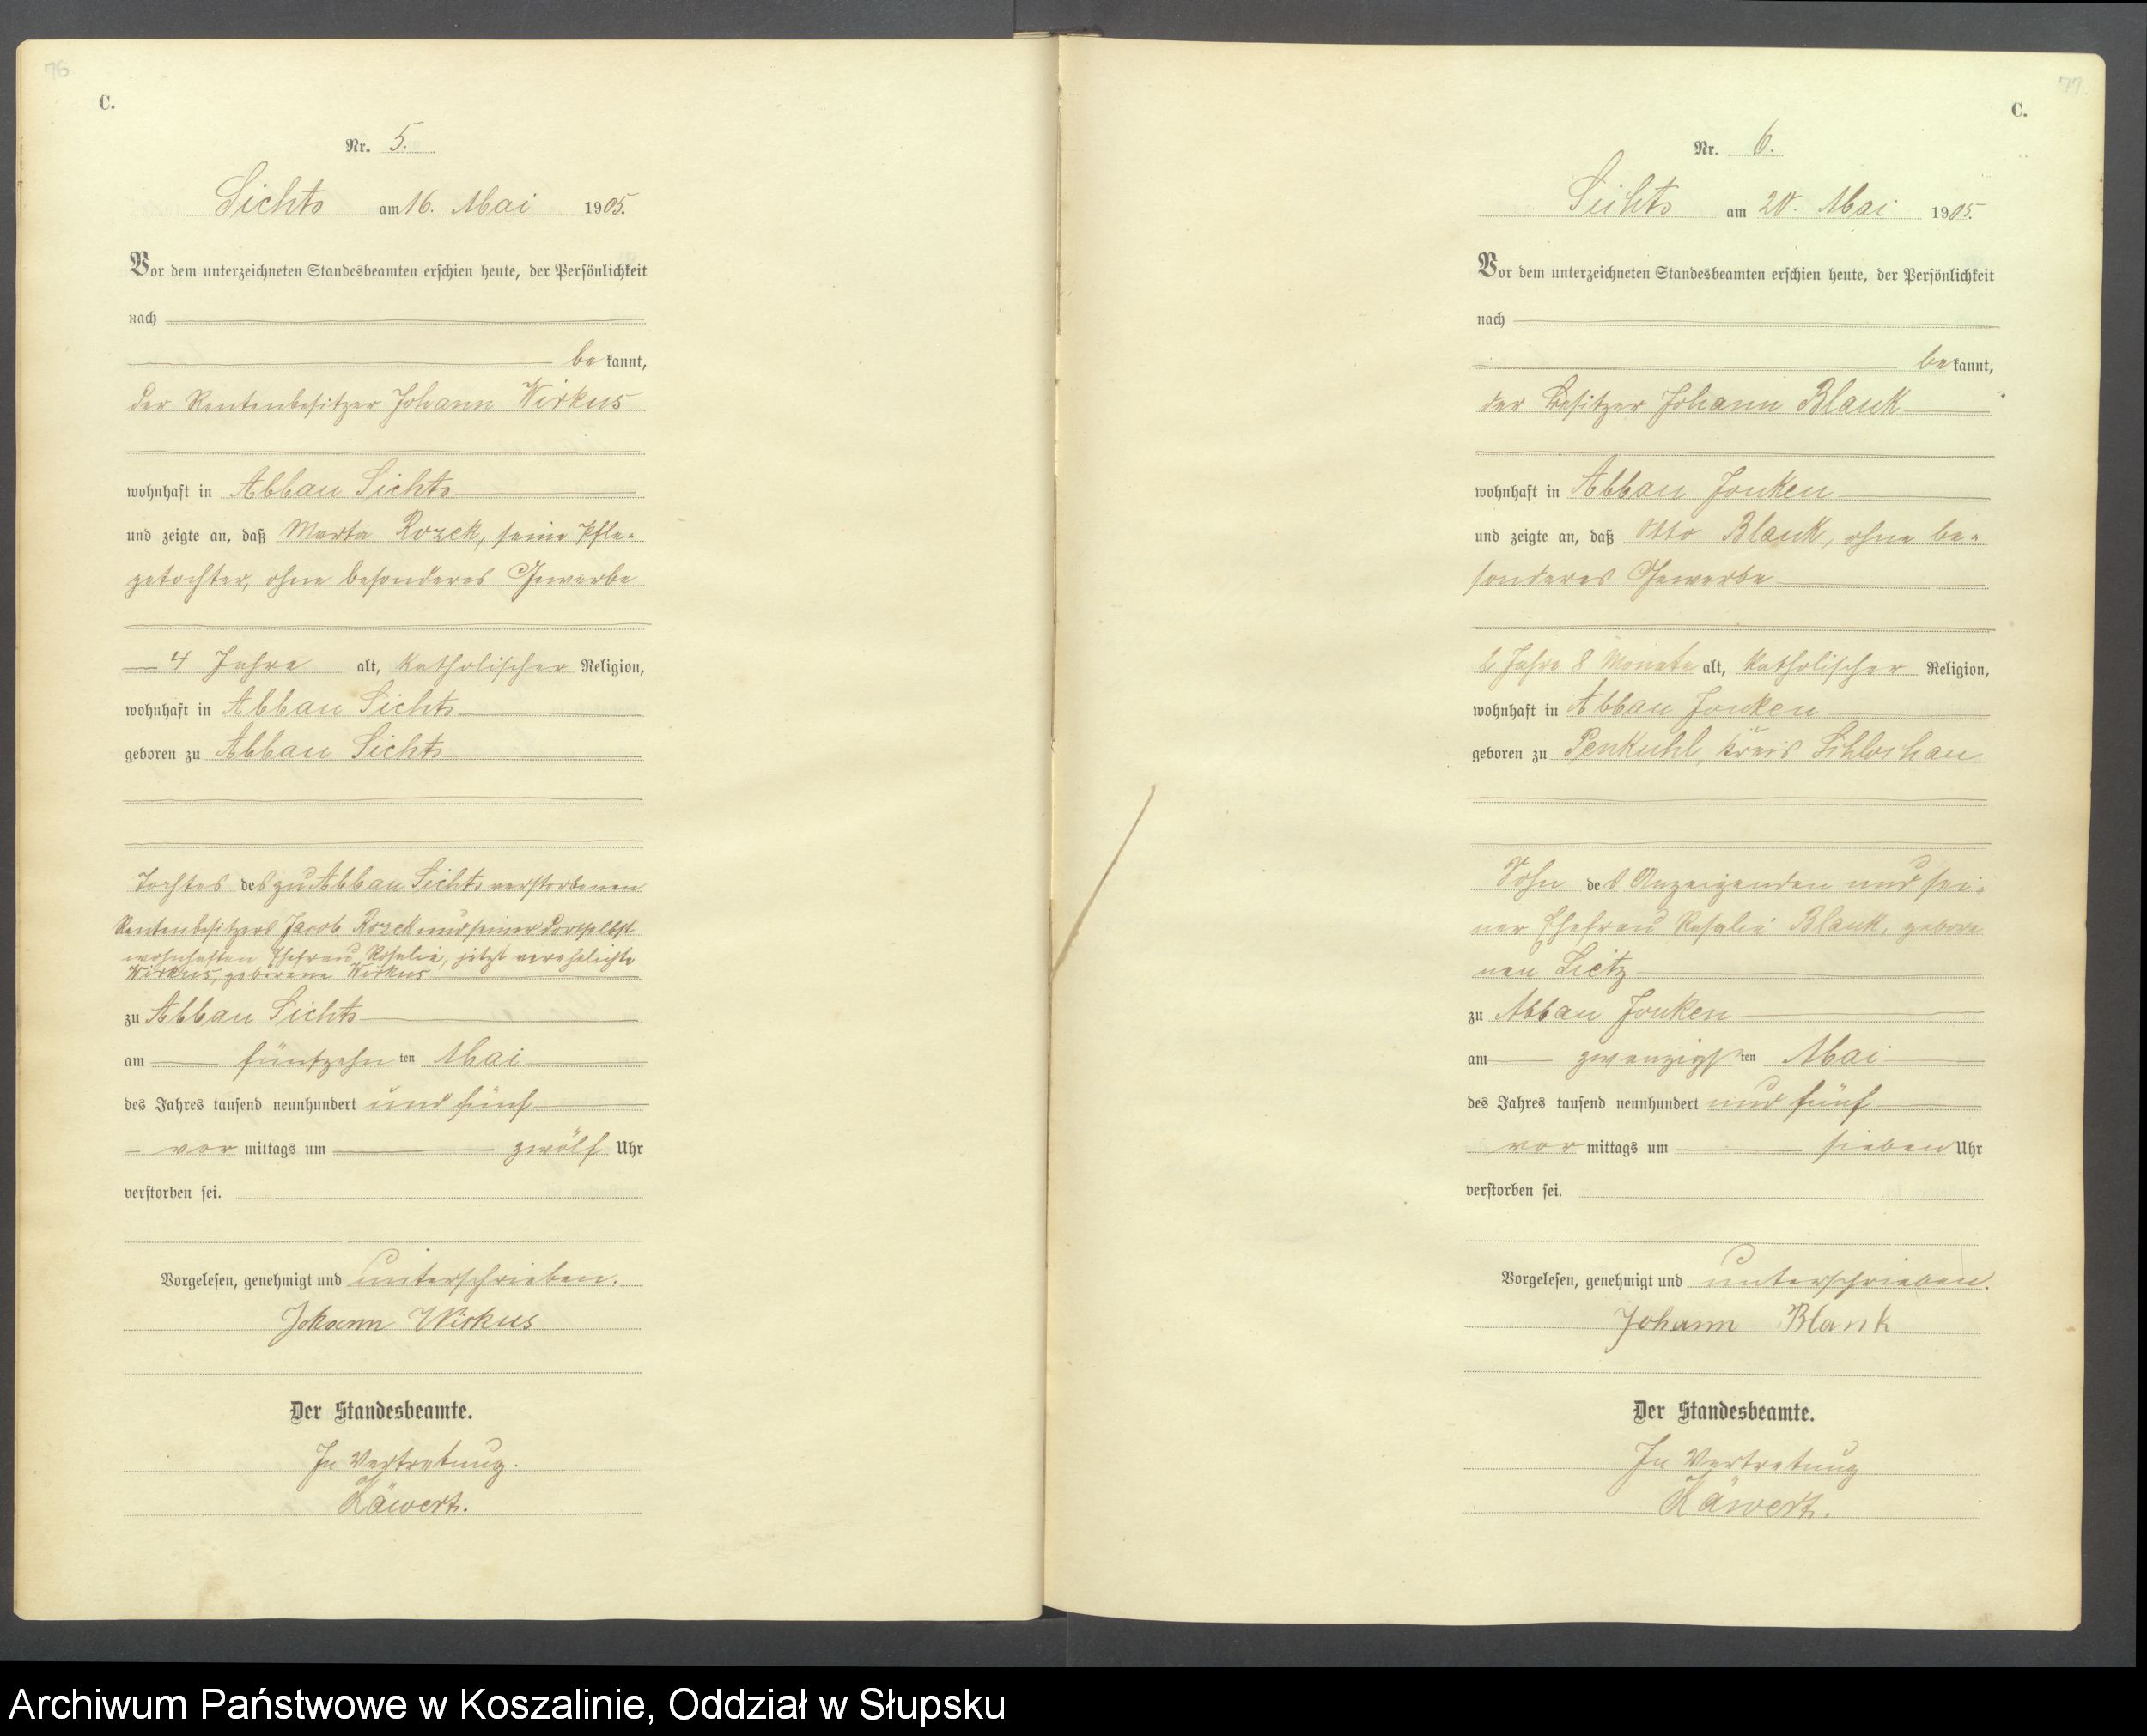 76
C.
Nr. 5.
Lichts am 16. Mai 1905.
Vor dem unterzeichneten Standesbeamten erschien heute, der Persönlichkeit
nach
bekannt,
der Rentenbesitzer Johann Wirkus
wohnhaft in Abbau Sichts
und zeigte an, daß Marta Rozek, seine Pfle-
getochter, ohne besonderes Gewerbe
4 Jahre alt, katholischer Religion,
wohnhaft in Abbau Sichts
geboren zu Abbau Sichts
Tochter des zu Abbau Sichts verstorbenen
Rentenbesitzers Jacob Rozek und seiner daselbst
wohnhaften Ehefrau Rosalie, jetzt verehelichte
Wirkus, geborene Wirkus
zu Abbau Sichts
am fünfzehnten Mai
des Jahres tausend neunhundert und fünf
vormittags um zwölf Uhr
verstorben sei.
Vorgelesen, genehmigt und unterschrieben.
Johann Wirkus
Der Standesbeamte.
In Vertretung.
Käwert.
77.
C.
Nr. 6.
Sichts am 20. Mai 1905.
Vor dem unterzeichneten Standesbeamten erschien heute, der Persönlichkeit
nach
bekannt,
der Besitzer Johann Blank
wohnhaft in Abbau Jonken
und zeigte an, daß Otto Blank, ohne be-
sonderes Gewerbe
2 Jahre 8 Monate alt, katholischer Religion,
wohnhaft in Abbau Jonken
geboren zu Penkuhl, Kreis Schlochau
Sohn des Anzeigenden und sei-
ner Ehefrau Rosalie Blank, gebore
nen Lietz
zu Abbau Jonken
am zwanzigsten Mai
des Jahres tausend neunhundert und fünf
vormittags um sieben Uhr
verstorben sei.
Vorgelesen, genehmigt und unterschrieben.
Johann Blank
Der Standesbeamte.
In Vertretung
Käwert.
Archiwum Państwowe w Koszalinie, Oddział w Słupsku